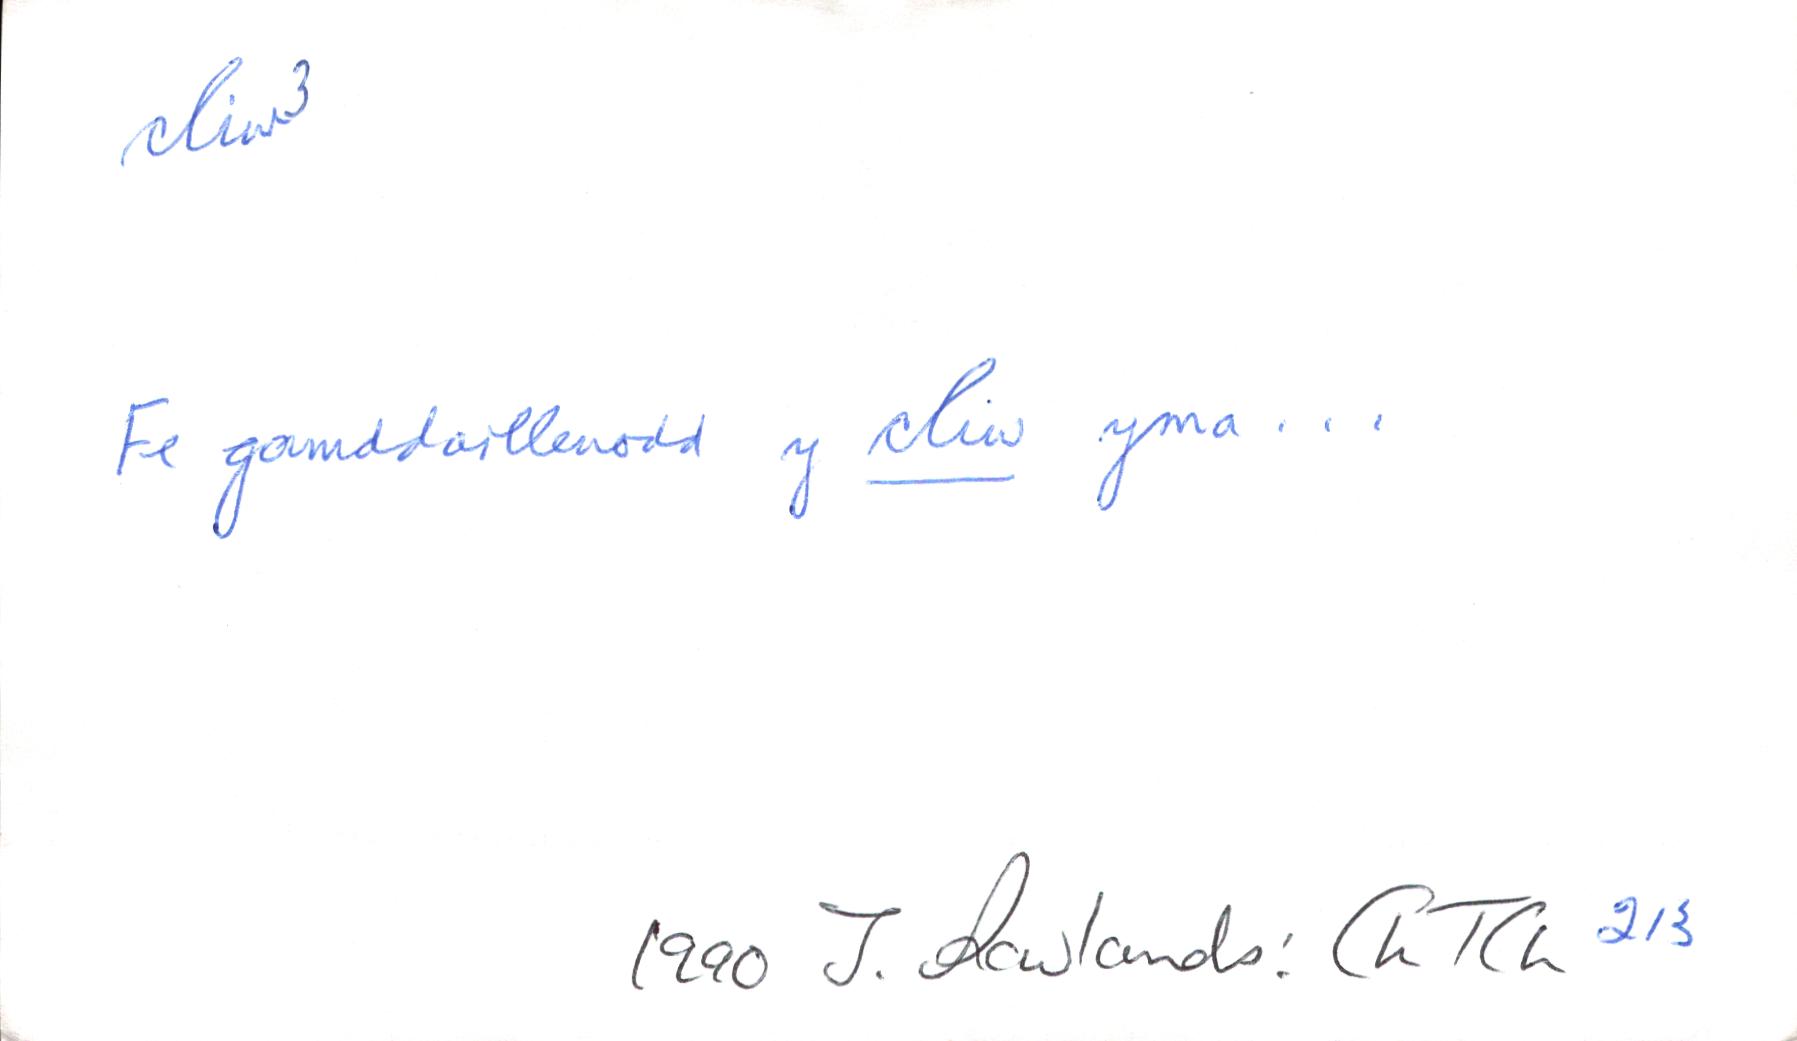 cliw³
Fe gamddarllenodd y cliw yma...
1990 J. Rowlands: ChTCh 213